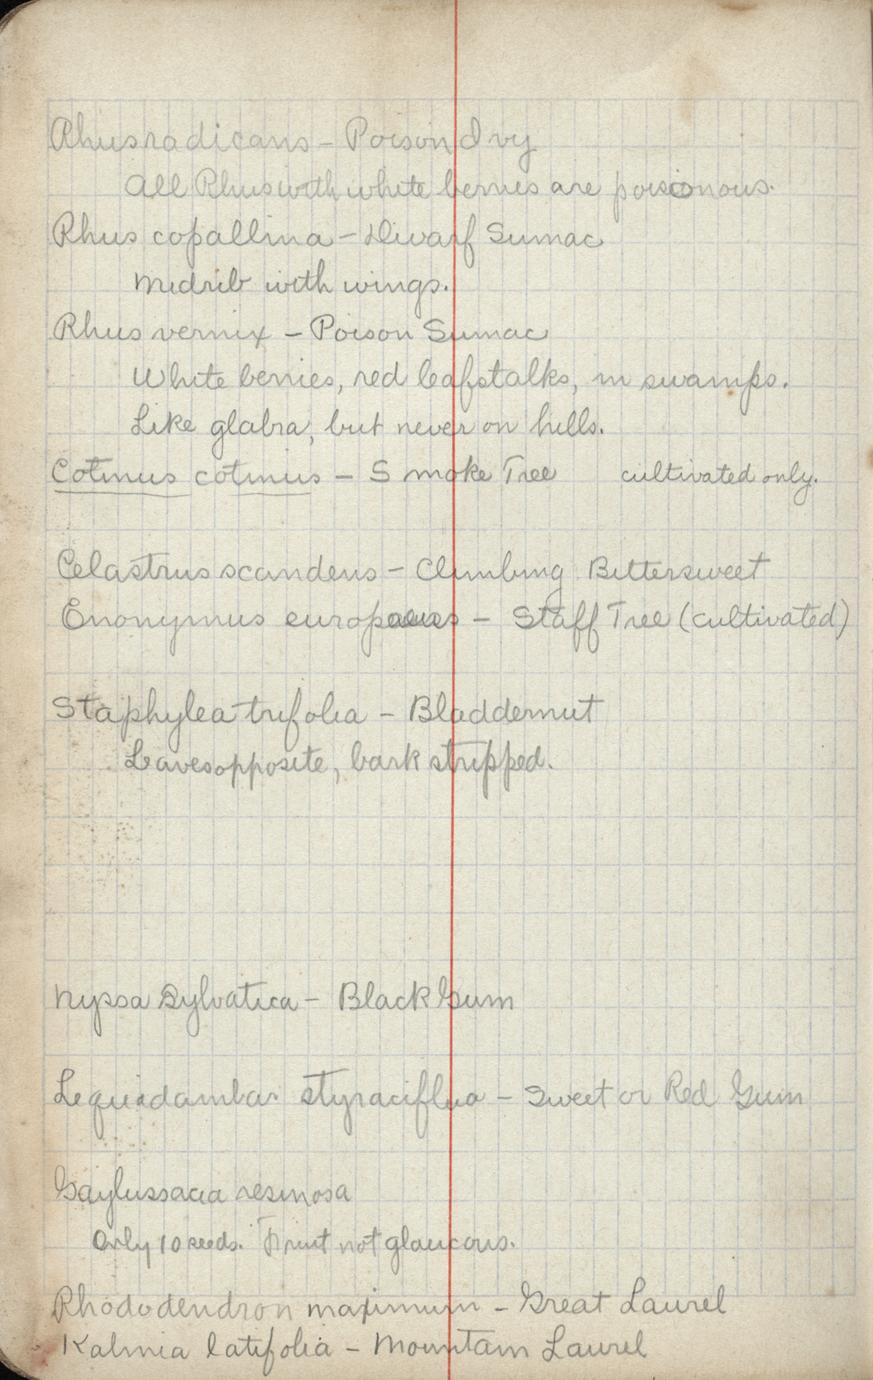 Rhus radicans - Poison Ivy
All Rhus with white berries are poisionous.
Rhus copallina - Dwarf Sumac
Midrib with wings.
Rhus vernix - Poison Sumac
White berries, red leafstalks, in swamps.
Like glabra, but never on hills.
Cotinus cotinus - Smoke Tree cultivated only.
Celastrus scandens - Climbing Bittersweet
Enonymus europaeus - Staff Tree (cultivated)
Staphylea trifolia - Bladdernut
Leaves opposite, bark stripped.
Nyssa Sylvatica - Black Gum
Liquidambar styraciflua - Sweet or Red Gum
Gaylussacia resinosa
Only 10 seeds. Fruit not glaucous.
Rhododendron maximum - Great Laurel
Kalmia latifolia - Mountain Laurel